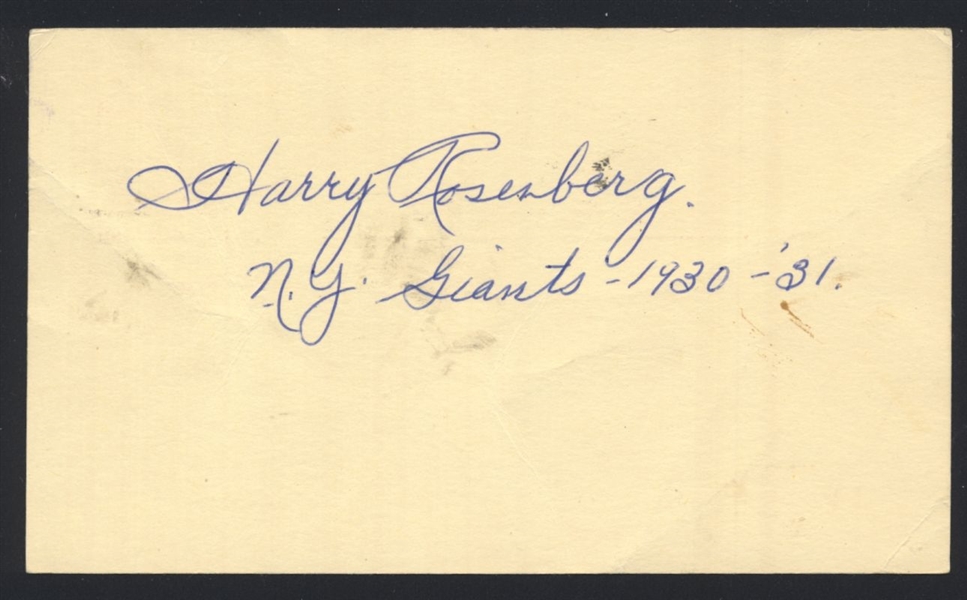 Harry Rosenberg.
N.Y. Giants - 1930 - '31.